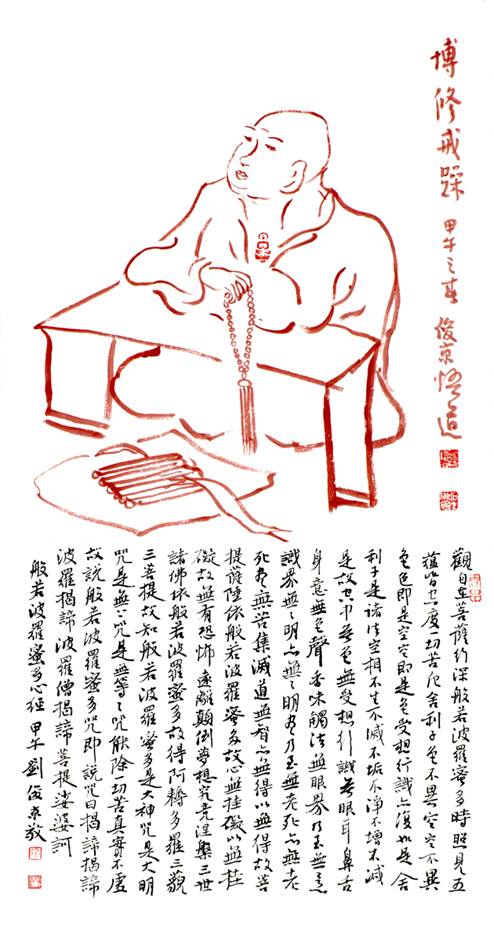 博修戒躁 甲午之春 俊京悟道
觀自在菩薩行深般若波羅蜜多時照見五
蘊皆空度一切苦厄舍利子色不異空空不異
色色即是空空即是色受想行識亦復如是舍
利子是諸法空相不生不滅不垢不淨不增不減
是故空中無色無受想行識無眼耳鼻舌
身意無色聲香味觸法無眼界乃至無意
識界無無明亦無無明盡乃至無老死亦無老
死盡無苦集滅道無智亦無得以無得故菩
提薩埵依般若波羅蜜多故心無挂礙以無挂
礙故無有恐怖遠離顛倒夢想究竟涅槃三世
諸佛依般若波羅蜜多故得阿耨多羅三藐
三菩提故知般若波羅蜜多是大神咒是大明
咒是無上咒是無等等咒能除一切苦真實不虛
故說般若波羅蜜多咒即說咒曰揭諦揭諦
波羅揭諦波羅僧揭諦菩提娑婆訶
般若波羅蜜多心經 甲午 劉俊京敬